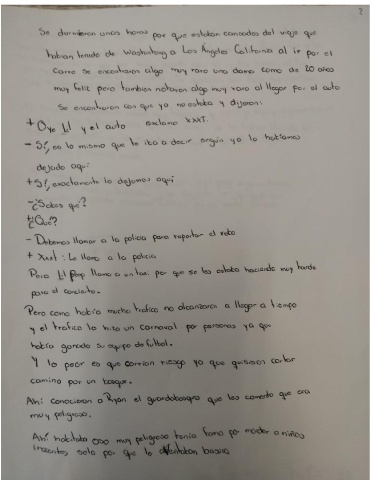 2
Se durmieron unas horas por que estaban cansados del viaje que
habian tenido de Washintong a Los Angeles California al ir por el
carro se encontraron algo muy raro una dama como de 20 años
muy feliz pero tambien notaron algo muy raro al llegar por el auto
Se encontraron con que ya no estaba y dijeron:
+ Oye Lil y el auto exclamo XXXT.
- Sí, es lo mismo que te iba a decir según yo lo habíamos
dejado aquí
+ Sí, exactamente lo dejamos aquí
- ¿Sabes que?
+ ¿Qué?
- Debemos llamar a la policia para reportar el robo
+ Xxxt : Le llamo a la policia
Pero Lil Peep llamo a un taxi por que se les estaba haciendo muy tarde
para el concierto.
Pero como habia mucho trafico no alcanzaron a llegar a tiempo
y el trafico lo hizo un carnaval por personas ya que
habia ganado su equipo de futbol.
Y lo peor es que corrian riesgo ya que quisieron cortar
camino por un bosque.
Ahí conocieron a Ryan el guardabosques que les comento que era
muy peligroso.
Ahí habitaba oso muy peligroso tenia fama por morder a niños
inocentes solo por que le aventaban basura